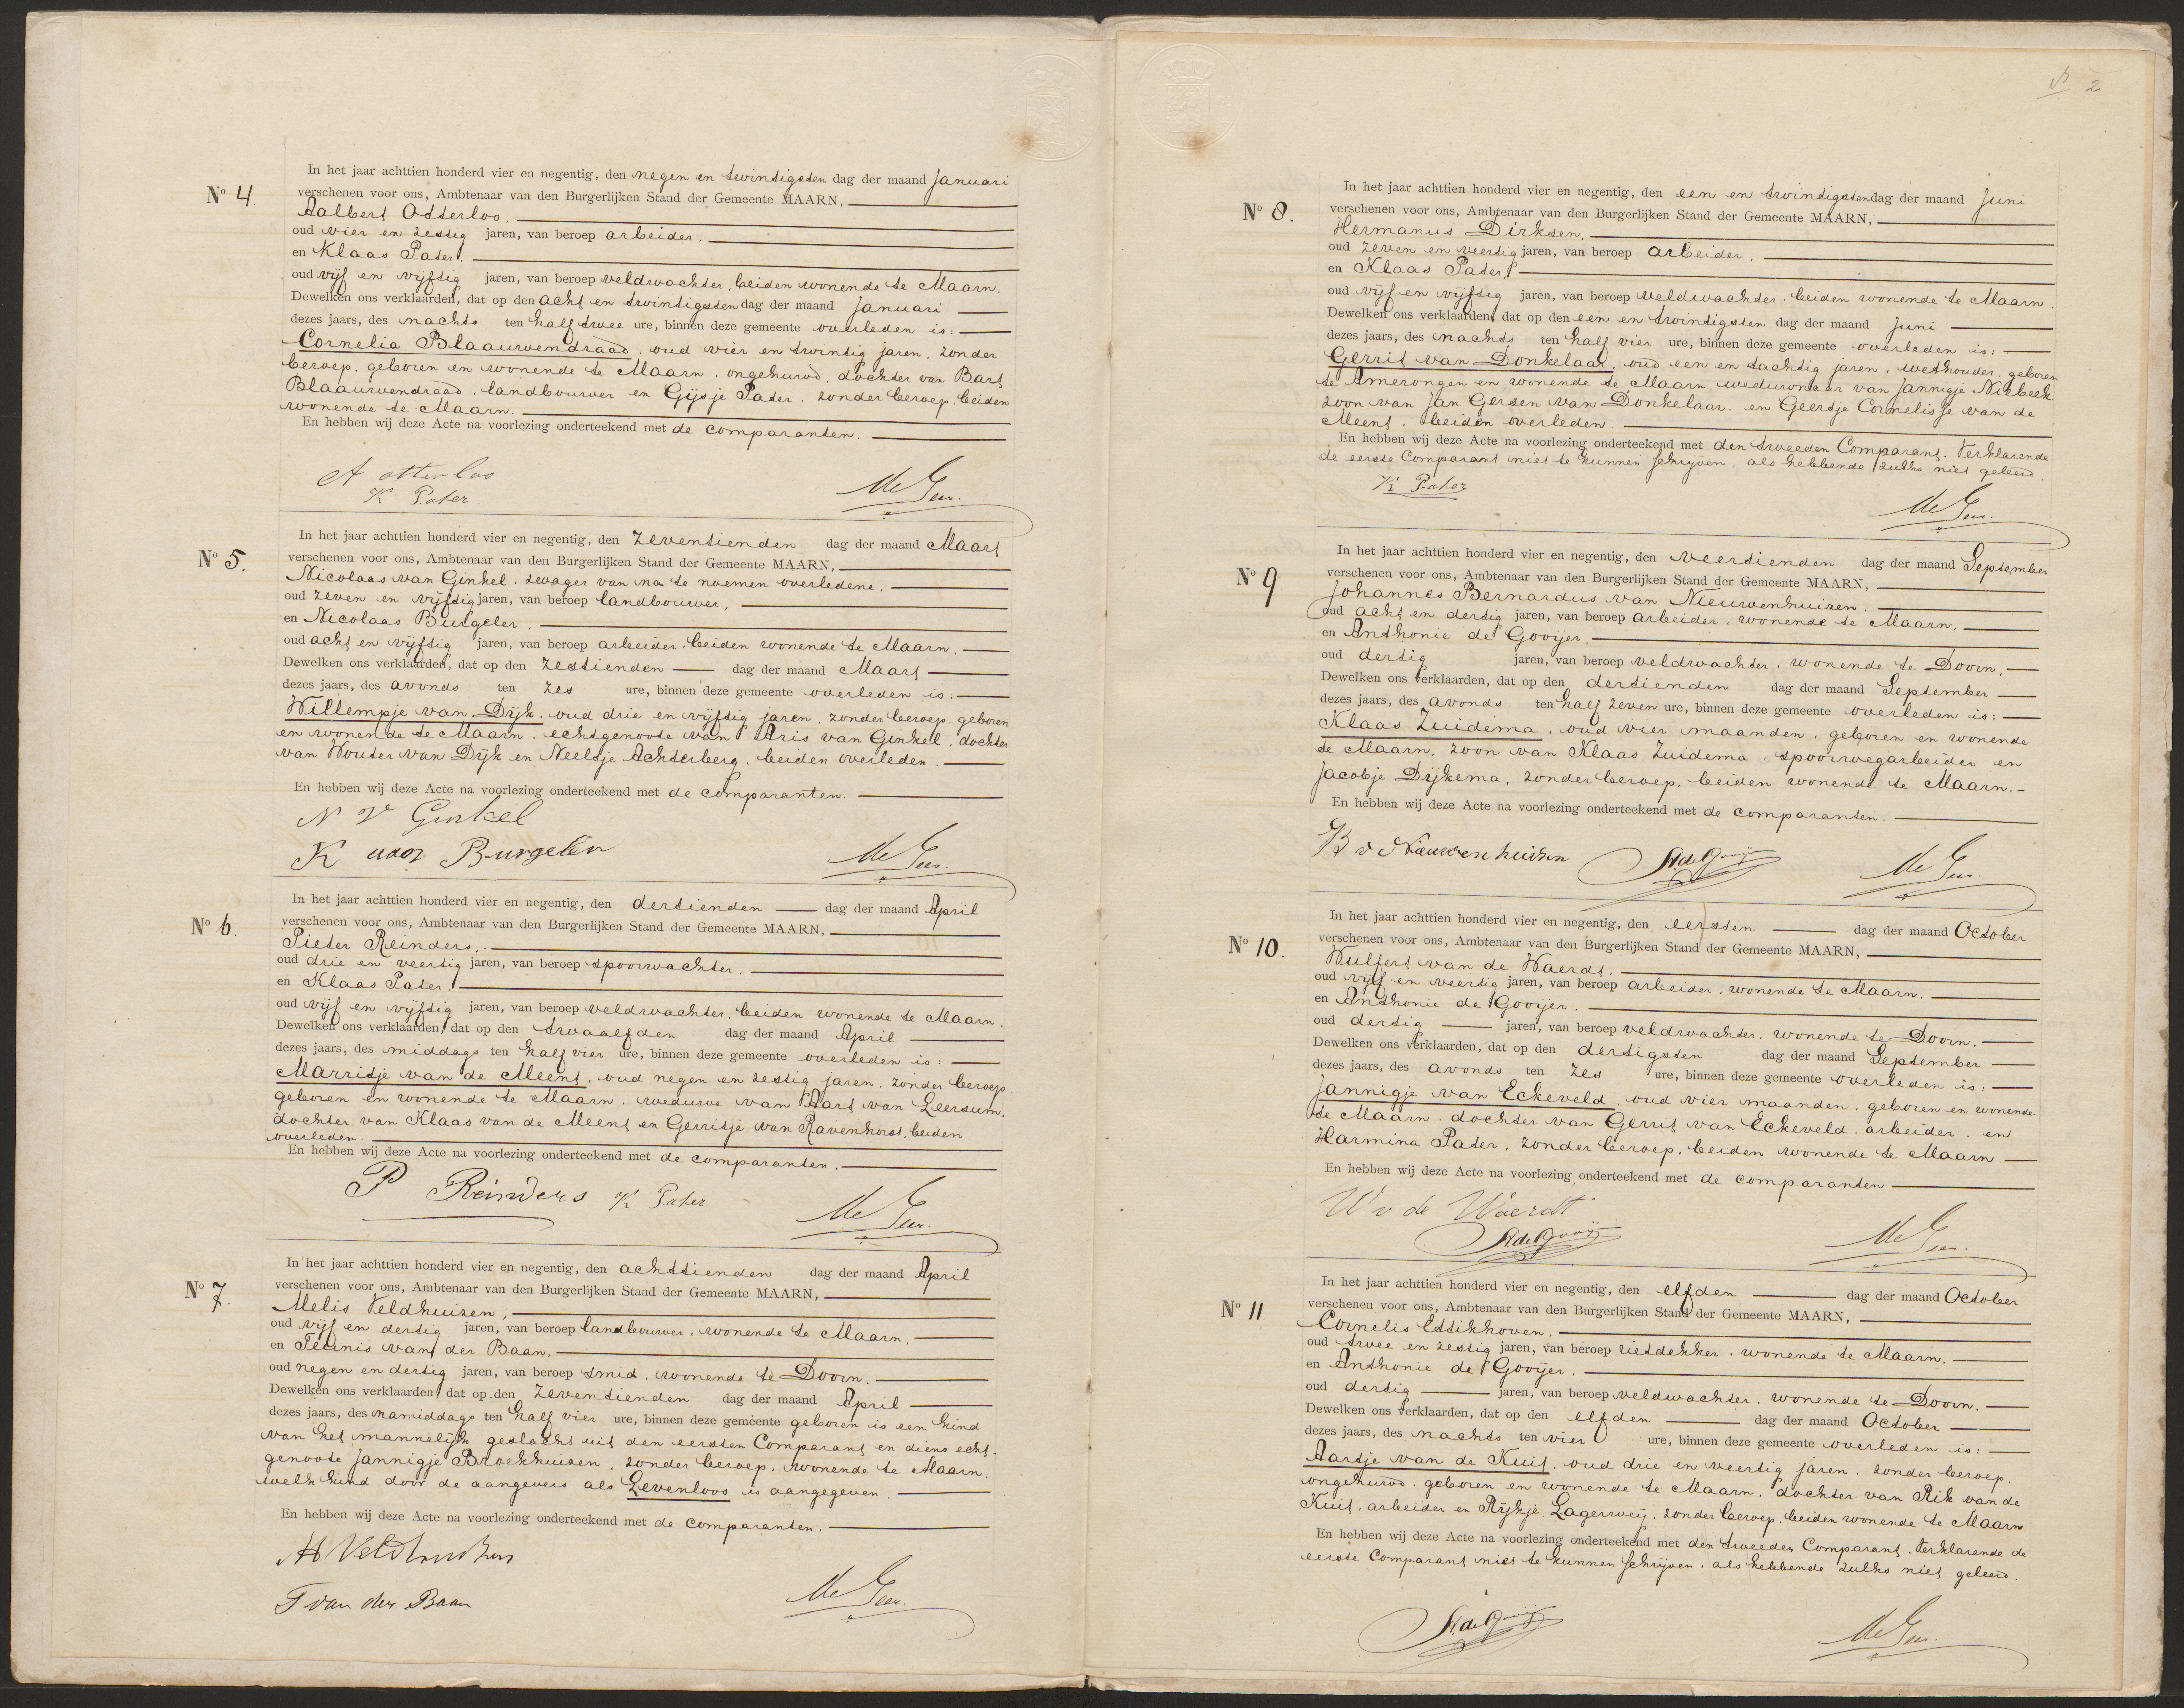 No 4.
In het jaar achttien honderd vier en negentig, den negen en twintigsten dag der maand Januari
verschenen voor ons, Ambtenaar van den Burgerlijken Stand der Gemeente MAARN,
Aalbert Otterloo.
oud vier en zestig jaren, van beroep arbeider.
en Klaas Pater.
oud vijf en vijftig jaren, van beroep veldwachter, beiden wonende te Maarn.
Dewelken ons verklaarden, dat op den acht en twintigsten dag der maand Januari
dezes jaars, des nachts ten half twee ure, binnen deze gemeente overleden is:
Cornelia Blaauwendraad, oud vier en twintig jaren, zonder
beroep, geboren en wonende te Maarn, ongehuwd, dochter van Bart
Blaauwendraad, landbouwer en Gijsje Pater, zonder beroep, beiden
wonende te Maarn.
En hebben wij deze Acte na voorlezing onderteekend met de comparanten.
A otterloo
K Pater
No 5.
In het jaar achttien honderd vier en negentig, den zeventienden dag der maand Maart
verschenen voor ons, Ambtenaar van den Burgerlijken Stand der Gemeente MAARN,
Nicolaas van Ginkel, zwager van na te noemen overledene,
oud zeven en vijftig jaren, van beroep landbouwer,
en Nicolaas Burgeler.
oud acht en vijftig jaren, van beroep arbeider, beiden wonende te Maarn.
Dewelken ons verklaarden, dat op den zestienden dag der maand Maart
dezes jaars, des avonds ten zes ure, binnen deze gemeente overleden is:
Willempje van Dijk, oud drie en vijftig jaren, zonder beroep, geboren
en wonende te Maarn, echtgenoote van Aris van Ginkel, dochter
van Wouter van Dijk en Neeltje Achterberg, beiden overleden.
En hebben wij deze Acte na voorlezing onderteekend met de comparanten.
N V Ginkel
K Burgeler
No 6.
In het jaar achttien honderd vier en negentig, den dertienden dag der maand April
verschenen voor ons, Ambtenaar van den Burgerlijken Stand der Gemeente MAARN,
Pieter Reinders,
oud drie en veertig jaren, van beroep spoorwachter,
en Klaas Pater,
oud vijf en vijftig jaren, van beroep veldwachter, beiden wonende te Maarn.
Dewelken ons verklaarden, dat op den twaalfden dag der maand April
dezes jaars, des middags ten half vier ure, binnen deze gemeente overleden is:
Marritje van de Meent, oud negen en zestig jaren, zonder beroep,
geboren en wonende te Maarn, weduwe van Aart van Leersum,
dochter van Klaas van de Meent en Gerritje van Ravenhorst, beiden
overleden.
En hebben wij deze Acte na voorlezing onderteekend met de comparanten.
P Reinders K Pater
No 7.
In het jaar achttien honderd vier en negentig, den achttienden dag der maand April
verschenen voor ons, Ambtenaar van den Burgerlijken Stand der Gemeente MAARN,
Melis Veldhuizen,
oud vijf en dertig jaren, van beroep landbouwer, wonende te Maarn.
en Teunis van der Baan,
oud negen en dertig jaren, van beroep smid, wonende te Doorn.
Dewelken ons verklaarden dat op den zeventienden dag der maand April
dezes jaars, des namiddags ten half vier ure, binnen deze gemeente geboren is een kind
van het mannelijk geslacht uit den eersten Comparant en diens echt-
genoote Jannigje Broekhuizen, zonder beroep, wonende te Maarn,
welk kind door de aangevers als Levenloos is aangegeven.
En hebben wij deze Acte na voorlezing onderteekend met de comparanten.
M Veldhuizen
T van der Baan
2
No 8.
In het jaar achttien honderd vier en negentig, den een en twintigsten dag der maand Juni
verschenen voor ons, Ambtenaar van den Burgerlijken Stand der Gemeente MAARN,
Hermanus Dirksen.
oud zeven en veertig jaren, van beroep arbeider,
en Klaas Pater,
oud vijf en vijftig jaren, van beroep veldwachter, beiden wonende te Maarn.
Dewelken ons verklaarden, dat op den een en twintigsten dag der maand Juni
dezes jaars, des nachts ten half vier ure, binnen deze gemeente overleden is:
Gerrit van Donkelaar, oud een en tachtig jaren, wethouder, geboren
te Amerongen en wonende te Maarn, weduwnaar van Jannigje Niebeek
zoon van Jan Gersen van Donkelaar en Geertje Cornelisje van de
Meent, beiden overleden.
En hebben wij deze Acte na voorlezing onderteekend met den tweeden Comparant. Verklarende
de eerste Comparant niet te kunnen schrijven, als hebbende zulks niet geleerd.
K Pater
No 9
In het jaar achttien honderd vier en negentig, den veertienden dag der maand September
verschenen voor ons, Ambtenaar van den Burgerlijken Stand der Gemeente MAARN,
Johannes Bernardus van Nieuwenhuizen.
oud acht en dertig jaren, van beroep arbeider, wonende te Maarn,
en Anthonie de Gooijer,
oud dertig jaren, van beroep veldwachter, wonende te Doorn,
Dewelken ons verklaarden, dat op den dertienden dag der maand September
dezes jaars, des avonds ten half zeven ure, binnen deze gemeente overleden is:
Klaas Zuidema, oud vier maanden, geboren en wonende
te Maarn, zoon van Klaas Zuidema, spoorwegarbeider en
Jacobje Dijkema, zonder beroep, beiden wonende te Maarn.
En hebben wij deze Acte na voorlezing onderteekend met de comparanten.
B v Nieuwenhuizen A. de Gooijer
No 10.
In het jaar achttien honderd vier en negentig, den eersten dag der maand October
verschenen voor ons, Ambtenaar van den Burgerlijken Stand der Gemeente MAARN,
Wulfert van de Waerdt.
oud vijf en veertig jaren, van beroep arbeider, wonende te Maarn.
en Anthonie de Gooijer.
oud dertig jaren, van beroep veldwachter, wonende te Doorn.
Dewelken ons verklaarden, dat op den dertigsten dag der maand September
dezes jaars, des avonds ten zes ure, binnen deze gemeente overleden is:
Jannigje van Eckeveld, oud vier maanden, geboren en wonende
te Maarn, dochter van Gerrit van Eckeveld, arbeider, en
Harmina Pater, zonder beroep, beiden wonende te Maarn
En hebben wij deze Acte na voorlezing onderteekend met de comparanten
W v de Waerdt
A. de Gooijer
No 11
In het jaar achttien honderd vier en negentig, den elfden dag der maand October
verschenen voor ons, Ambtenaar van den Burgerlijken Stand der Gemeente MAARN,
Cornelis Ettikhoven,
oud twee en zestig jaren, van beroep rietdekker, wonende te Maarn,
en Anthonie de Gooijer,
oud dertig jaren, van beroep veldwachter, wonende te Doorn.
Dewelken ons verklaarden, dat op den elfden dag der maand October
dezes jaars, des nachts ten vier ure, binnen deze gemeente overleden is:
Aartje van de Kuit, oud drie en veertig jaren, zonder beroep,
ongehuwd, geboren en wonende te Maarn, dochter van Rik van de
Kuit, arbeider en Rijkje Lagerweij, zonder beroep, beiden wonende te Maarn
En hebben wij deze Acte na voorlezing onderteekend met den tweeden Comparant. Verklarende de
eerste Comparant niet te kunnen schrijven, als hebbende zulks niet geleerd.
A. de Gooijer